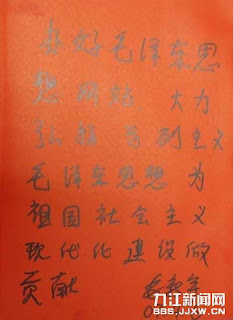 办好毛泽东思
想网站 大力
弘扬马列主义
毛泽东思想 为
祖国社会主义
现代化建设做
贡献 毛新宇
九江新闻网
BBS.JJXW.CN